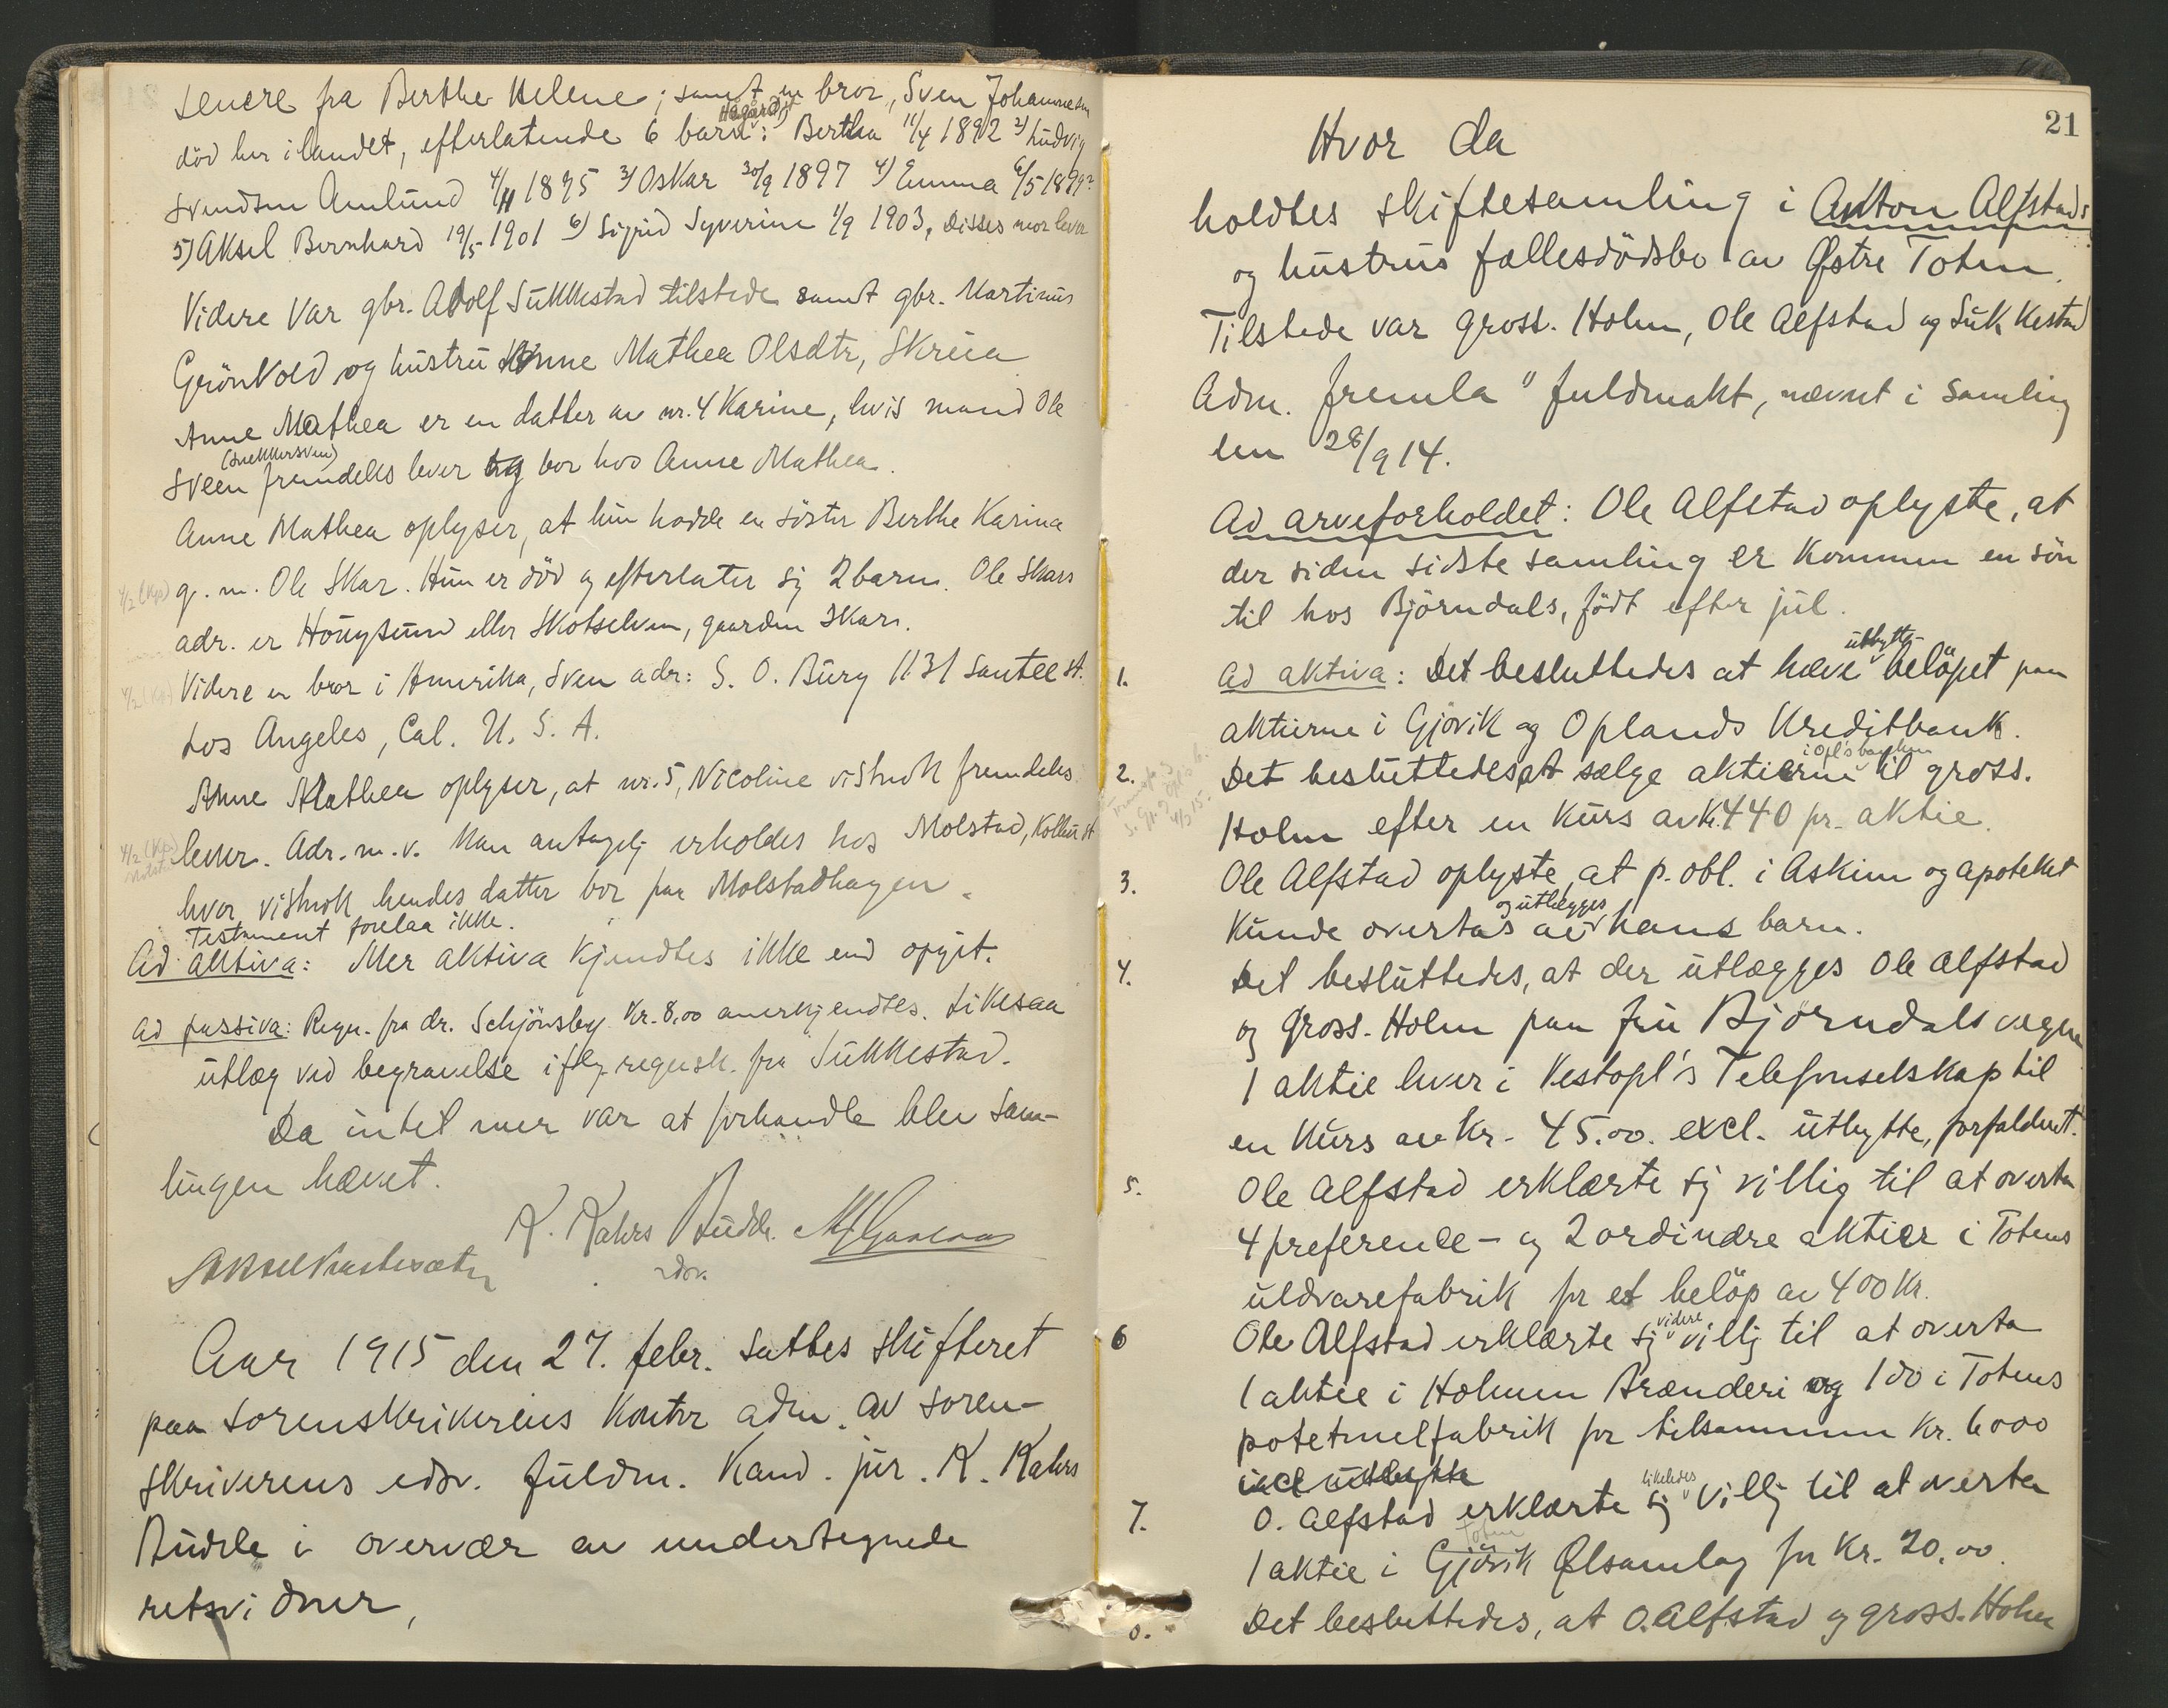 senere fra Berthe Helene; samt en bror, Sven Johannesen
død her i landet, efterlatende 6 barn: 1) Bertha Hågård 11/4 1892 2) Ludvig
Svendsen Amlund 4/11 1895 3) Oskar 30/9 1897 4) Emma 6/5 1899?
5) Aksel Bernhard 19/5 1901 6) Sigrid Syverine 1/9 1903, Disses mor lever
Videre var gbr. Adolf Sukkestad tilstede samt gbr. Martinus
Grönvold og hustru Anne Mathea Olsdtr, Skreia
Anne Mathea er en datter av nr. 4 Karine, hvis mand Ole
Sveen (Snekkersveen) fremdeles lever og bor hos Anne Mathea.
Anne Mathea oplyser, at hun hadde en söster Berthe Karina
g. m. Ole Skar. Hun er död og efterlater sig 2 barn. Ole Skars
adr. er Hougsund eller Skotselven, gaarden Skar.
Videre en bror i Amerika, Sven adr: S. O. Burg 1131 Santee st.
Los Angeles, Cal. U. S. A.
Anne Mathea oplyser, at nr. 5, Nicoline vistnok fremdeles
lever. Adr. m. v. kan antagelig erholdes hos Molstad, Kolbu st
hvor vistnok hendes datter bor paa Molstadhagen.
Testament forelaa ikke.
Ad aktiva: Mer aktiva kjendtes ikke end opgit.
Ad passiva: Regn. fra dr. Schjönsby kr. 8.00 anerkjendtes. Likesaa
utlæg ved begravelse iflg. regnsk. fra Sukkestad.
Da intet mer var at forhandle blev sam-
lingen hævet.
K. Kahrs Budde
edsv.
Aar 1915 den 27. febr. sattes skifteret
paa sorenskriverens kontor adm. av soren-
skriverens edsv. fuldm. Kand. jur. K. Kahrs
Budde i overvær av undertegnede
retsvidner,
21
Hvor da
holdtes skiftesamling i Anton Alfstads
og hustrus fællesdödsbo av Østre Toten.
Tilstede var gross. Holm, Ole Alfstad og Sukkestad
Adm. fremla fuldmakt, nævnt i samling
den 28/9 14.
Ad arveforholdet: Ole Alfstad oplyste, at
der siden sidste samling er kommen en sön
til hos Björndals, födt efter jul.
1. Ad aktiva: Det besluttedes at hæve utbytte-belöpet paa
aktierne i Gjövik og Oplands Kreditbank.
2. Det besluttedes at sælge aktierne i Opl's banken til gross.
Holm efter en kurs av kr. 440 pr. aktie.
3. Ole Alfstad oplyste, at p. obl. i Askim og apoteket
kunde overtas og utlægges av hans barn.
4. Det besluttedes, at der utlægges Ole Alfstad
og gross. Holm paa fru Björndals vegne
1 aktie hver i Vestopl's Telefonselskap til
en kurs av kr. 45.00. excl. utbytte, forfaldent.
5. Ole Alfstad erklærte sig villig til at overta
4 preference- og 2 ordinære aktier i Totens
uldvarefabrik for et belöp av 400 kr.
6 Ole Alfstad erklærte sig videre villig til at overta
1 aktie i Holmen Brænderi og 1 do i Totens
potetmelfabrik for tilsammen kr. 6000
incl utbytte
7. O. Alfstad erklærte sig likeledes villig til at overta
1 aktie i Gjövik Toten Ølsamlag for kr. 20.00.
Det besluttedes, at O. Alfstad og gross. Holm